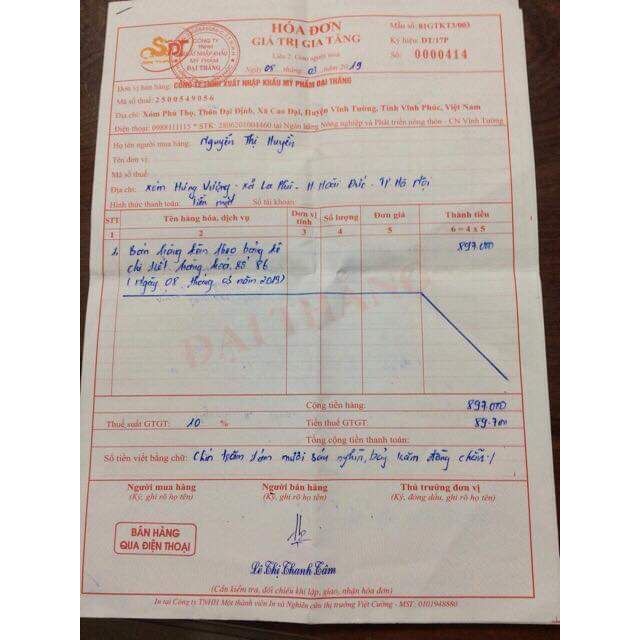 HÓA ĐƠN
GIÁ TRỊ GIA TĂNG
Liên 2: Giao người mua
Ngày 08 tháng 03 năm 2019
Mẫu số: 01GTKT3/003
Ký hiệu: DT/17P
Số: 0000414
CÔNG TY
TNHH
XUẤT NHẬP KHẨU
MỸ PHẨM
ĐẠI THẮNG
Đơn vị bán hàng: CÔNG TY TNHH XUẤT NHẬP KHẨU MỸ PHẨM ĐẠI THẮNG
Mã số thuế: 2500549056
Địa chỉ: Xóm Phú Thọ, Thôn Đại Định, Xã Cao Đại, Huyện Vĩnh Tường, Tỉnh Vĩnh Phúc, Việt Nam
Điện thoại: 0980111115 * STK: 2806201004460 tại Ngân hàng Nông nghiệp và Phát triển nông thôn - CN Vĩnh Tường
Họ tên người mua hàng: Nguyễn Thị Huyền
Tên đơn vị:
Mã số thuế:
Địa chỉ: Xóm Hùng Vương - Xã La Phù - H Hoài Đức - TP Hà Nội
Hình thức thanh toán: Tiền mặt Số tài khoản:
STT Tên hàng hóa, dịch vụ Đơn vị tính Số lượng Đơn giá Thành tiền
1 2 3 4 5 6 = 4 x 5
1. Bán hàng kèm theo bảng kê 897.000
chi tiết hàng hoá số 86
(Ngày 08 tháng 03 năm 2019)
ĐẠI THẮNG
Cộng tiền hàng: 897.000
Thuế suất GTGT: 10 % Tiền thuế GTGT: 89.700
Tổng cộng tiền thanh toán:
Số tiền viết bằng chữ: Chín trăm tám mươi sáu nghìn, bảy trăm đồng chẵn./
Người mua hàng Người bán hàng Thủ trưởng đơn vị
(Ký, ghi rõ họ tên) (Ký, ghi rõ họ tên) (Ký, đóng dấu, ghi rõ họ tên)
BÁN HÀNG
QUA ĐIỆN THOẠI
Lê Thị Thanh Tâm
(Cần kiểm tra, đối chiếu khi lập, giao, nhận hóa đơn)
In tại Công ty TNHH Một thành viên In và Nghiên cứu thị trường Việt Cường - MST: 0101948880